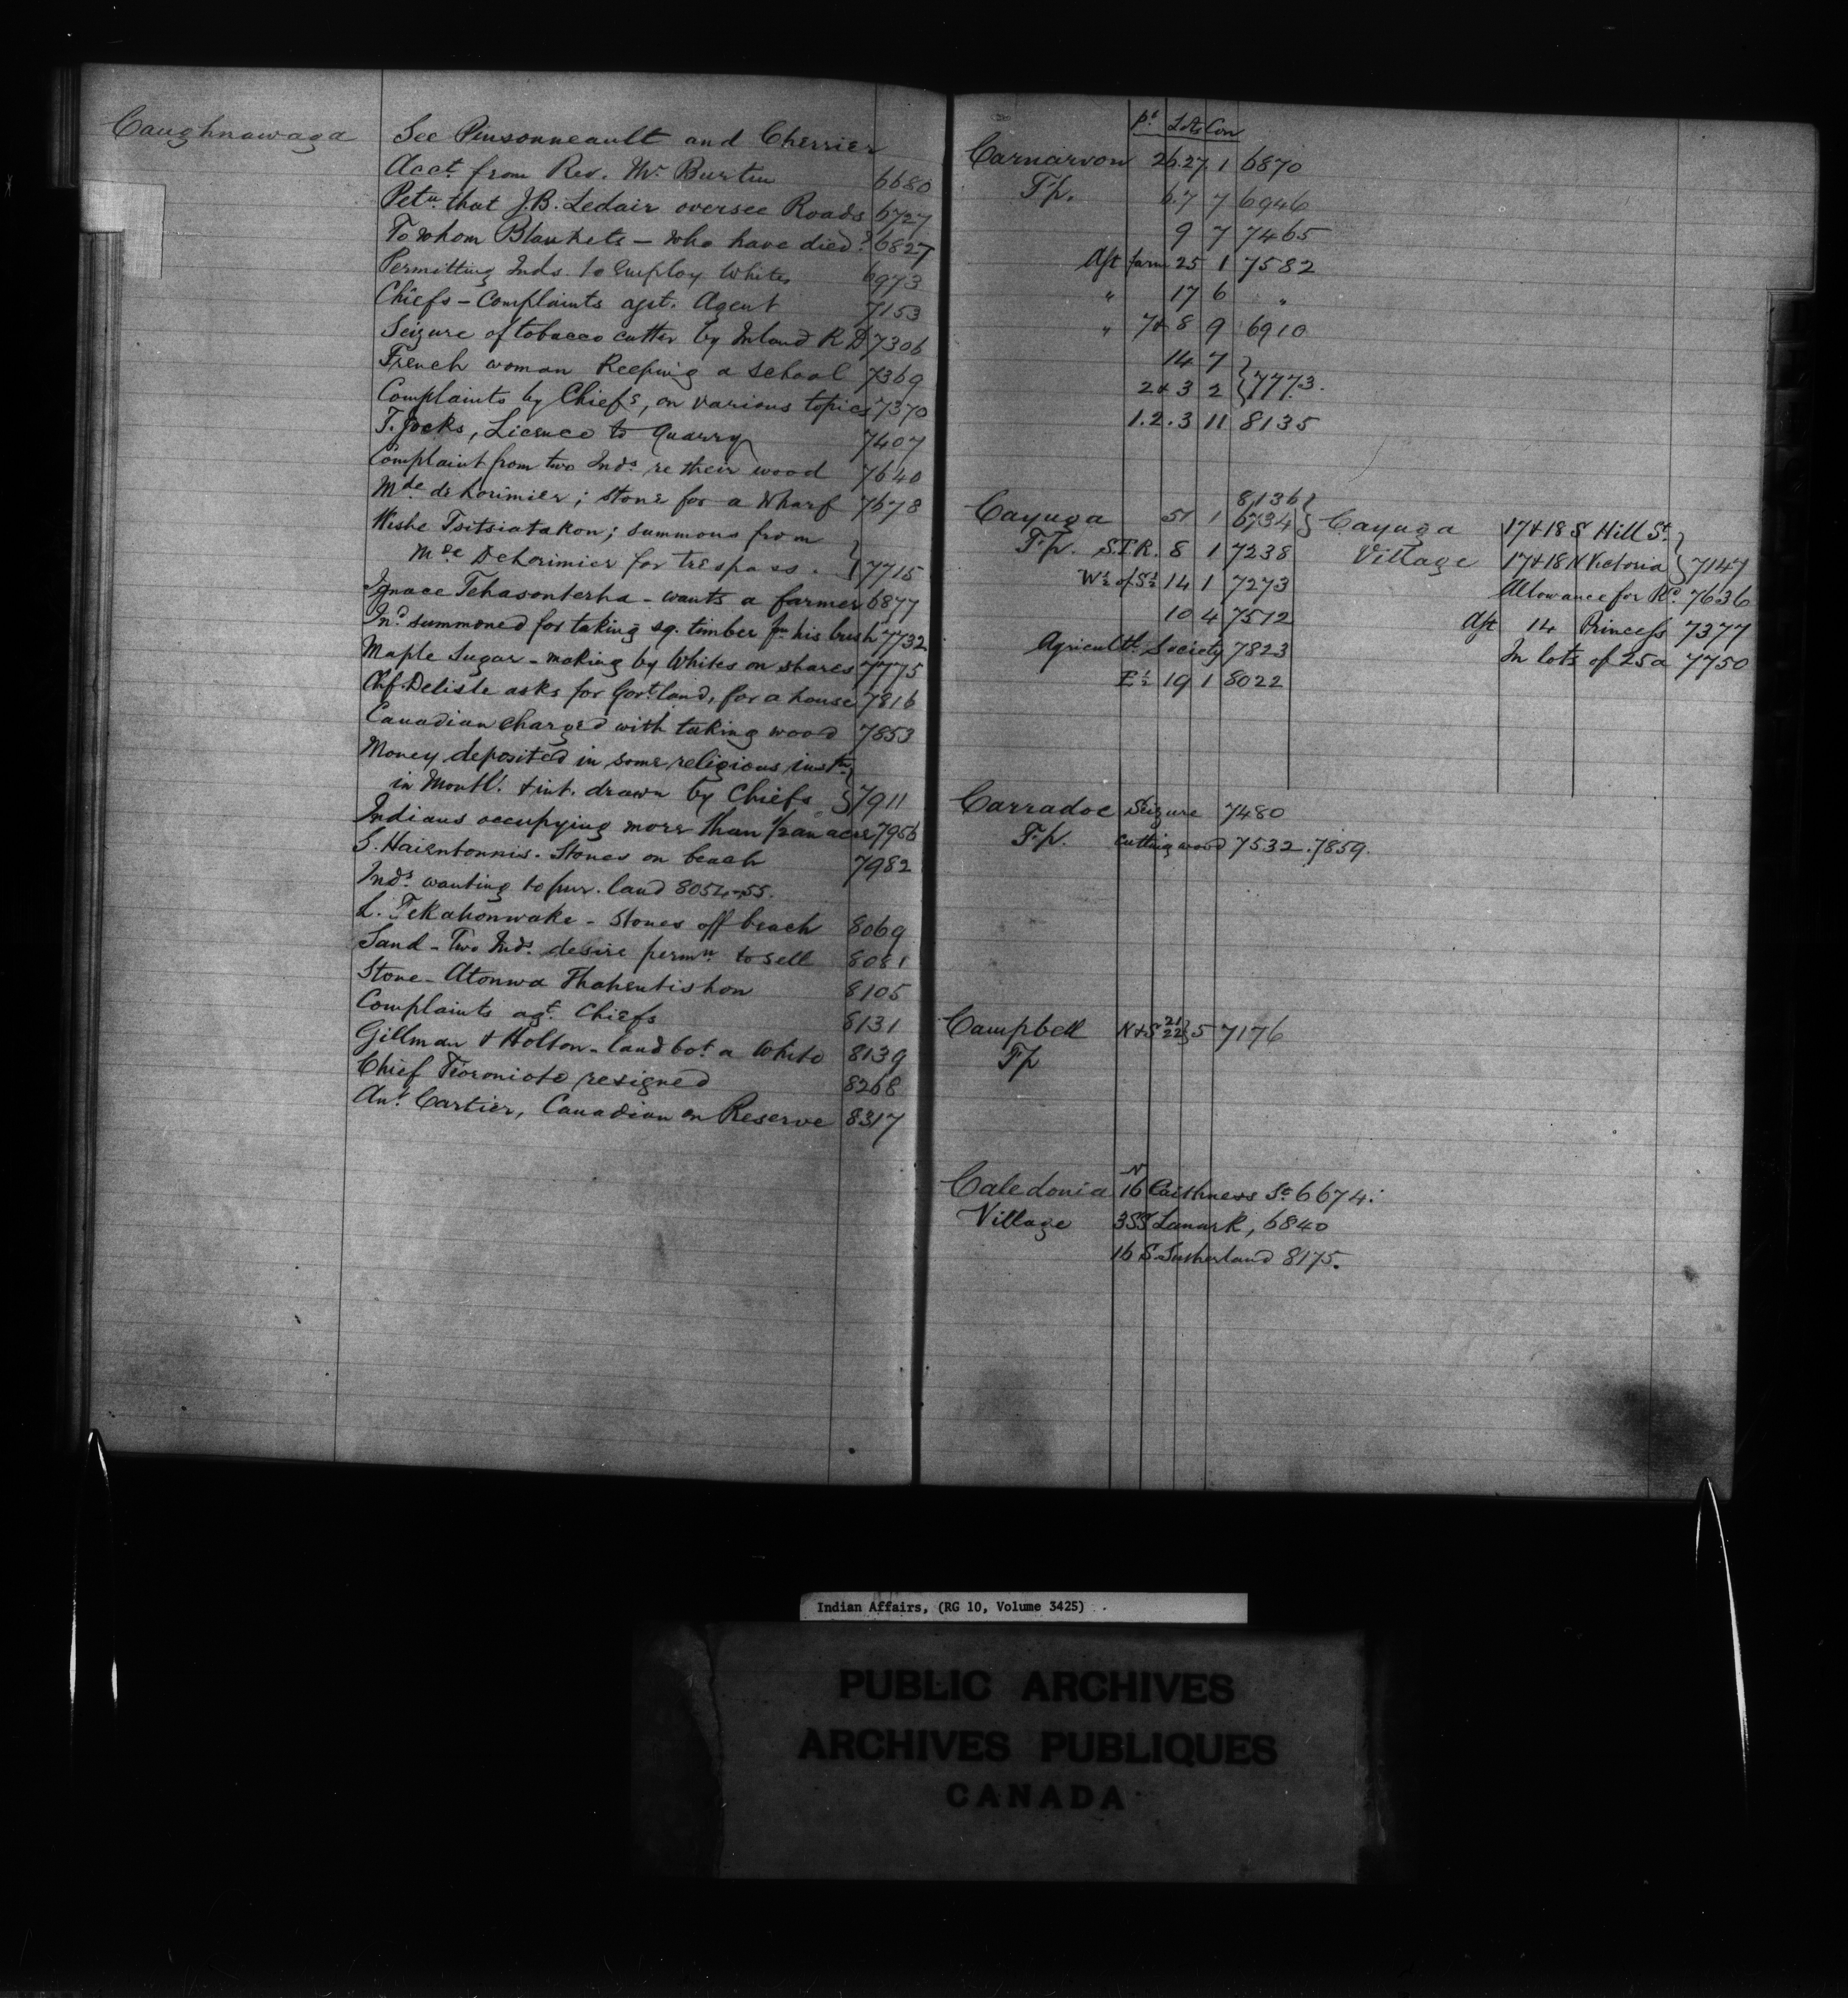 Caughnawaga See Pinsonneault and Cherrier
Acct. from Rev. Mr Burtin 6680
Petn that J.B. Leclair oversee Roads 6727
To whom Blankets — who have died? 6827
Permitting Inds. to employ Whites 6973
Chiefs — Complaints agst. Agent 7153
Seizure of tobacco cutter by Inland R D 7306
French woman keeping a school 7369
Complaints by Chiefs, on various topics 7370
T. Jocks, Licence to Quarry 7407
Complaint from two Inds. re their wood 7640
Mde de Lorimier; stone for a Wharf 7678
Wishe Tsitsiatakon; summons from
Mde Delorimier for trespass. } 7715
Ignace Tehasonterha - wants a farmer 6877
Ind. summoned for taking sq. timber fm his bush 7732
Maple Sugar - making by Whites on shares 7775
Chf. Delisle asks for Govt. land, for a house 7816
Canadian charged with taking wood 7853
Money deposited in some religious instn
in Montl. & int. drawn by Chiefs } 7911
Indians occupying more than ½ an acre 7956
S. Haientonnis. Stones on beach 7982
Inds. wanting to pur. land 8054-55.
L. Tekahonwake - Stones off beach 8069
Sand - Two Inds. desire permn to sell 8081
Stone - Atonwa Thahentishon 8105
Complaints agt. Chiefs 8131
Gillman & Holton - land bot. a White 8139
Chief Tioroniote resigned 8268
Ant. Cartier, Canadian on Reserve 8317
Pt Lots Con
Carnarvon 26.27. 1 6870
Tp. 6.7 7 6946
9 7 7465
Aft farm 25 1 7582
" 17 6 "
" 7 & 8 9 6910
14 7 }
2 & 3 2 } 7773.
1.2.3 11 8135
8136 }
Cayuga 51 1 6734 }
Tp. S.T.R. 8 1 7238
W½ of S½ 14 1 7273
10 4 7512
Agricultl. Society 7823
E½ 19 1 8022
Cayuga 17 & 18 S Hill St. }
Village 17 & 18 N Victoria } 7147
Allowance for Rd. 7636
Aft 14 Princess 7377
In lots of 25a 7750
Carradoc Seizure 7480
Tp. Cutting wood 7532. 7859.
Campbell N & S 21 22 } 5 7176
Tp
N
Caledonia 16 Caithness St 6674.
Village 3 SS Lanark, 6840
16 S Sutherland 8175.
Indian Affairs, (RG 10, Volume 3425)
PUBLIC ARCHIVES
ARCHIVES PUBLIQUES
CANADA